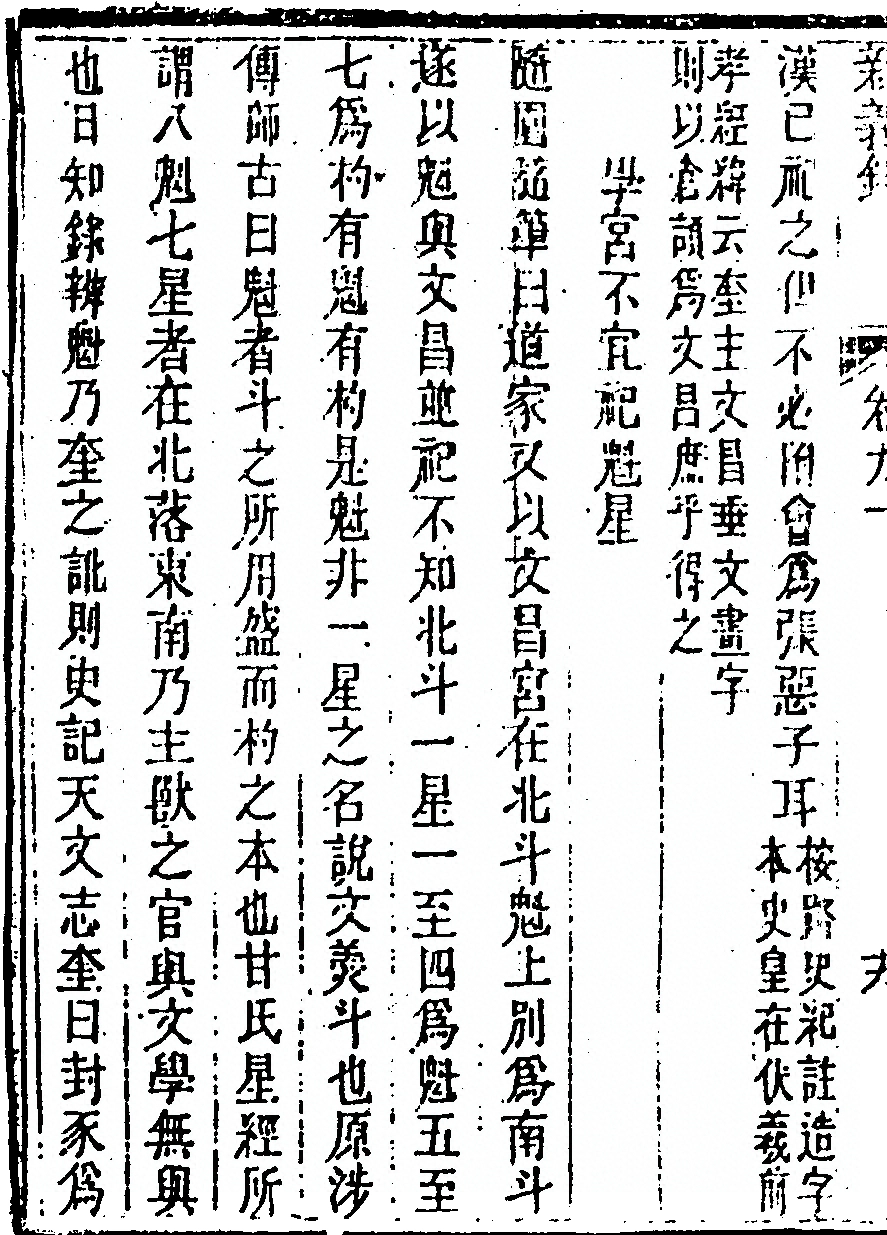 義錄 卷九一
漢已祀之但不必附會爲張惡子耳 桉路史紀註造字
本史皇在伏羲前
孝經緯云奎主文昌垂文畫字
則以倉頡爲文昌庶乎得之
學宮不宜祀魁星
隨園隨筆曰道家又以文昌宮在北斗魁上别爲南斗
遂以魁與文昌並祀不知北斗一星一至四爲魁五至
七爲杓有魁有杓是魁非一星之名說文羹斗也原涉
傳師古曰魁者斗之所用盛而杓之本也甘氏星經所
謂八魁七星者在北落東南乃主獸之官與文學無與
也日知錄辨魁乃奎之訛則史記天文志奎曰封豕爲